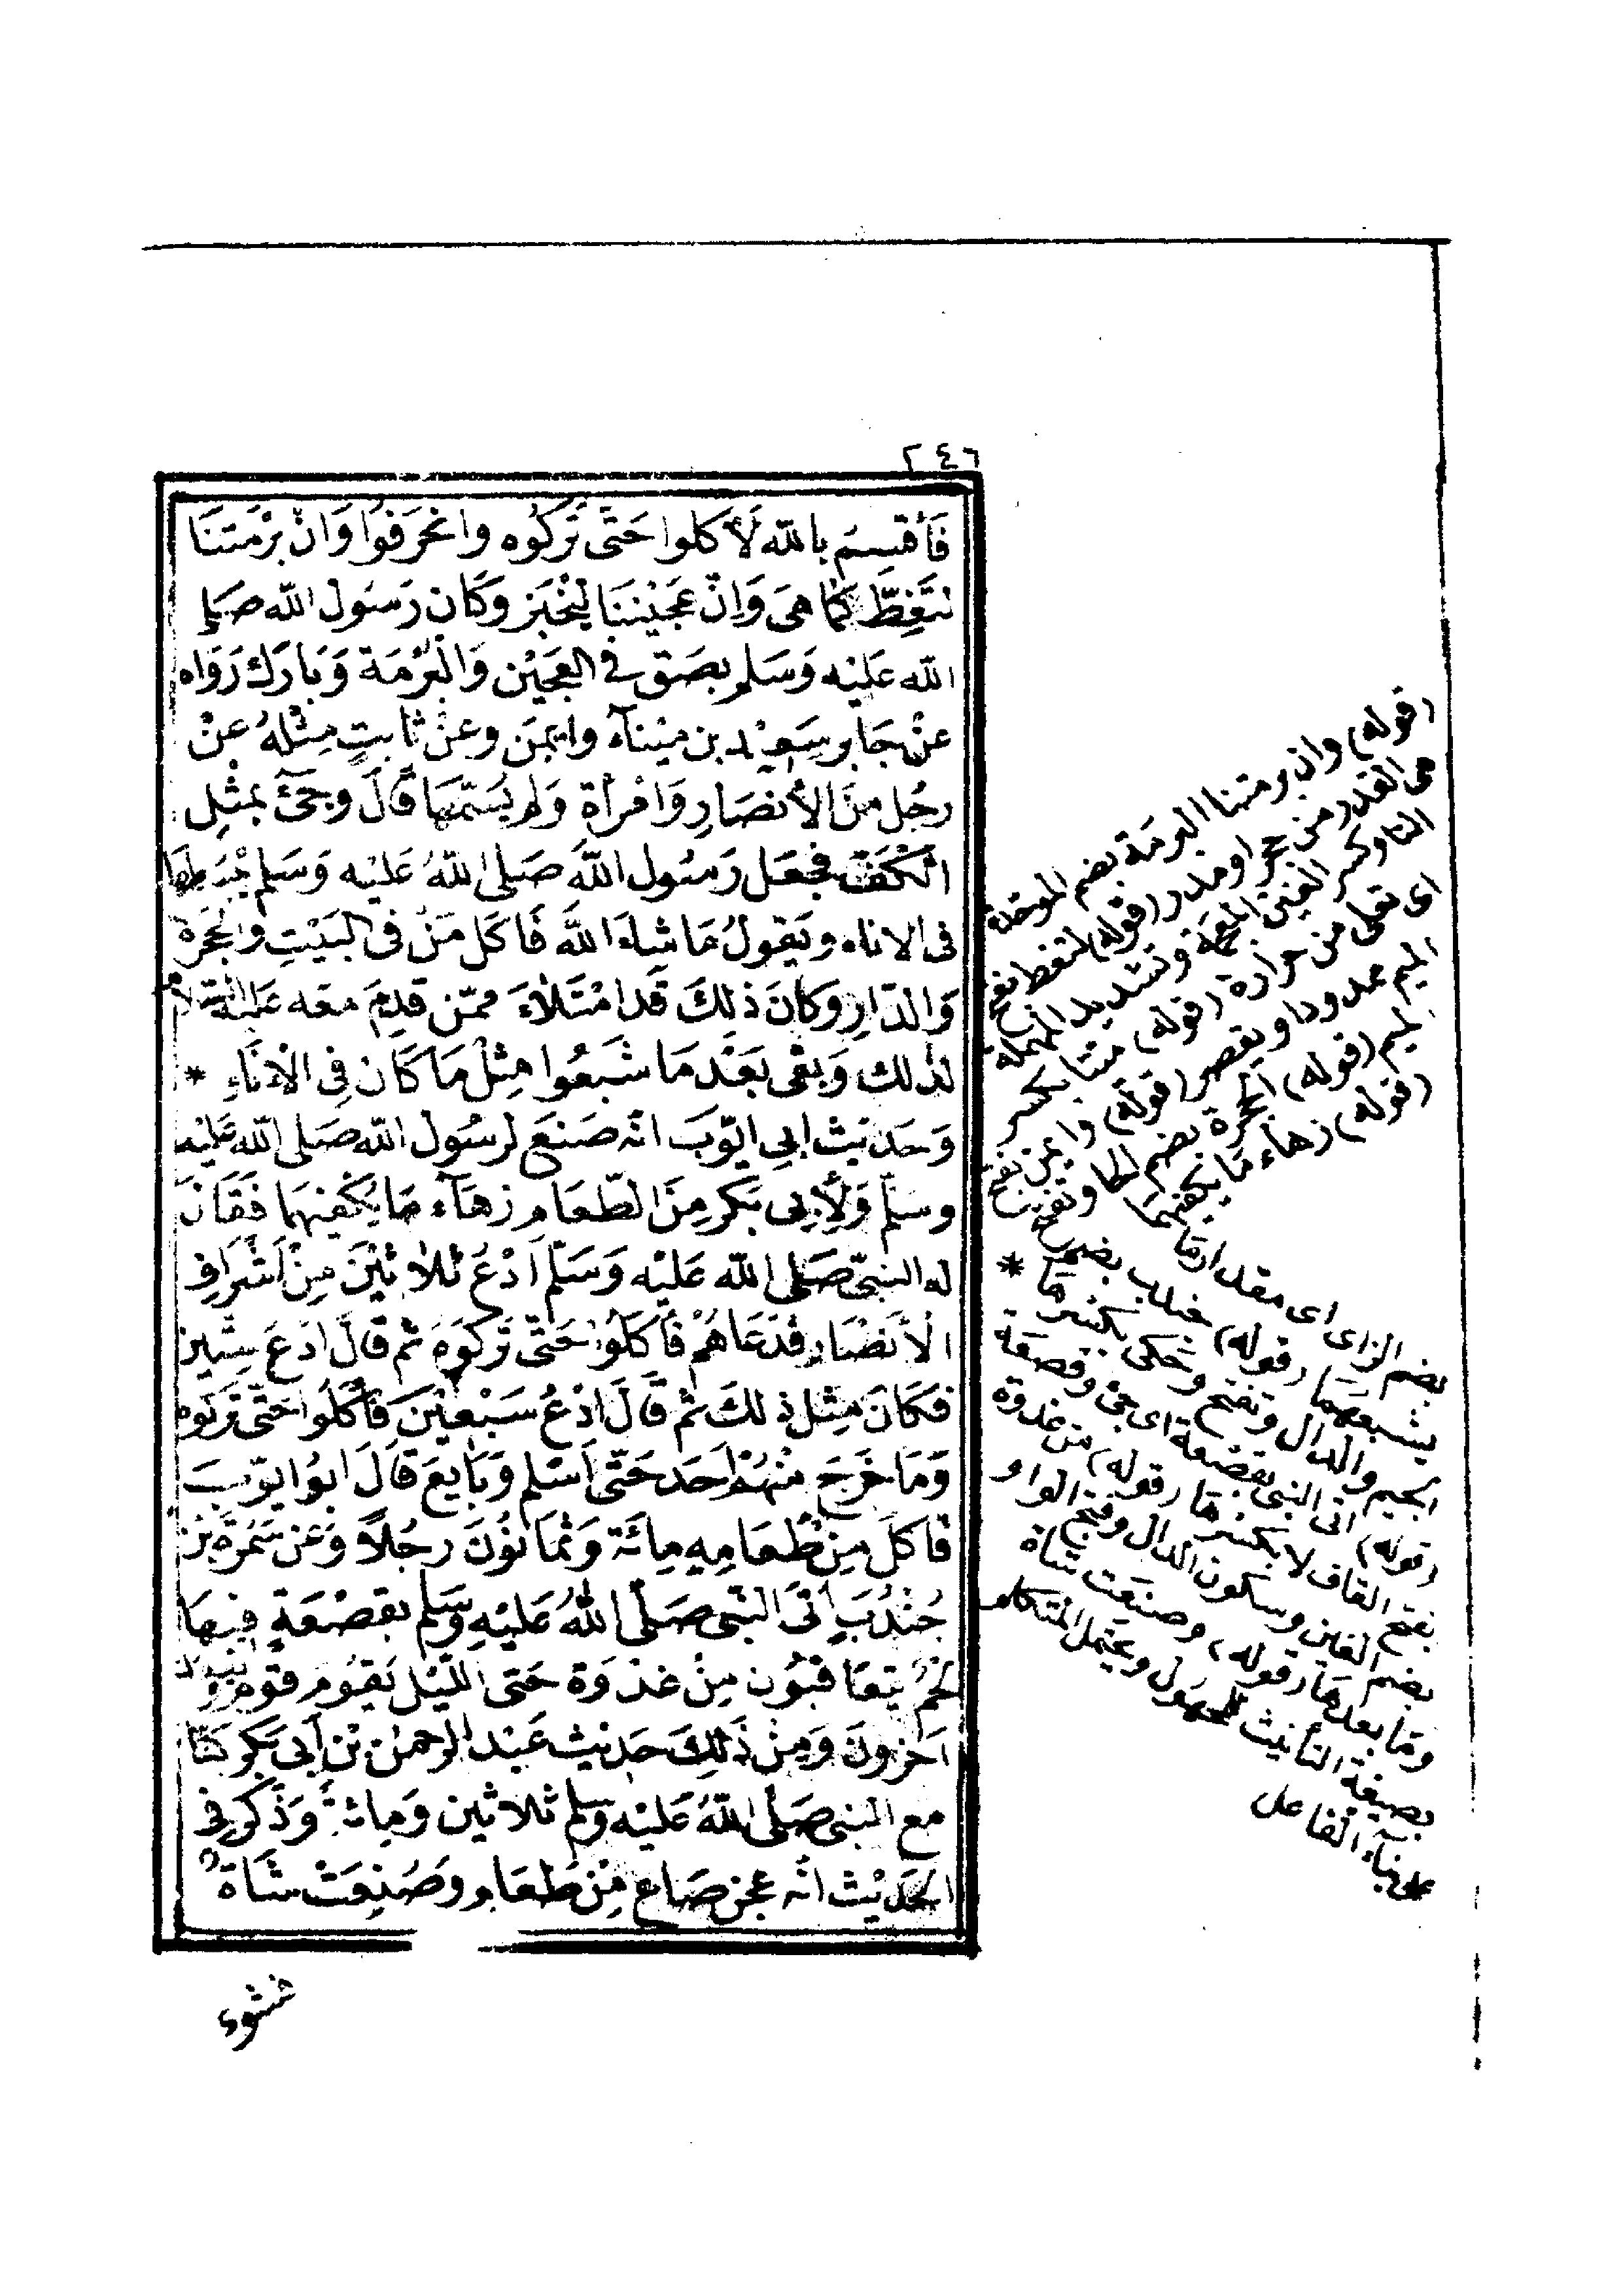 ٢٤٦
فَأُقْسِمُ بِاللّٰه لَأَكَلوا حَتّٰى تَرَكُوه وانحَرَفُوا وَانّ بُرْمَتَنَا
لتَغِطُّ كَمَا هِىَ وَاِنّ عَجِيْنَنَا ليُخْبَز وَكَان رَسُول اللّٰه صَلى
اللّٰه عَلَيْه وَسَلم بصَق فى العَجِيْن وَالْبُرْمَة وَبَارَك رَوَاه
عَنْ جَابر سَعِيْد بن مِيْنآء وايمَن وعَنْ ثَابتٍ مِثْلهُ عَنْ
رجُل مِنَ الأنصَارِ وَامْرأة وَلم يُسَمّهمَا قَالَ وجئَ بمثْلِ
الْكَفّ فجعَل رَسُول اللّٰه صَلى اللّٰهُ عَلَيْه وَسَلم يَبْسطهَا
فى الاناء ويَقولُ مَا شاءَ اللّٰه فَاكَل مَنْ فى البَيْتِ والحُجرَة
وَالدّار وَكانَ ذٰلكَ قَد امْتَلأءَ ممّن قدِمَ معَه عَليْه السّلام
لذٰلك وَبقى بَعْدمَا شَبعُوا مِثْلَ مَا كَان فى الْاناءِ *
وَحَديث ابى ايّوبَ انّه صَنعَ لرسُول اللّٰه صَلى اللّٰه عَليْه
وسَلم وَلأبى بَكر مِنَ الطّعَام زهَآء مَا يَكْفيهمَا فَقَالَ
له النبىّ صَلى اللّٰه عَلَيْه وَسَلم اُدْعُ ثلاثيْنَ مِنْ اَشْرَافِ
الأنصَار فدعَاهُمْ فَأكَلُوا حَتّٰى تَرَكوهُ ثم قالَ ادعَ ستّين
فكَانَ مِثل ذلكَ ثم قَالَ ادْعُ سَبْعيْنَ فَأكَلُوا حَتّٰى تَرَكُوه
وَمَا خَرجَ منْهُمْ اَحَد حَتّٰى اَسْلم وَبَايعَ قالَ ابُو ايّوبَ
فَاكَلَ مِنْ طَعَامِه مِائَة وَثمَانُونَ رجُلاً وَعَن سَمُرَة بْن
جُنْدُبٍ اتى النّبى صَلّى اللّٰهُ عَليْهِ وَسَلم بقَصْعَةٍ فيهَا
لحْمٌ فتعَاقبُون مِنْ غدْوَة حَتى الليْل يَقوُم قوم ويقعد
اخرونَ وَمِنْ ذَلِكَ حَديث عَبْد الرحمٰن بْن اَبى بَكر كنّا
مع النبى صَلى اللّٰهُ عَليْه وَسلم ثلاثين وَمِائة وَذَكر فى
الحَدِيْث انّه عجن صَاع مِنْ طَعَام وصُنِعَتْ شَاةٌ
فشوى
(قوله) وان برمتنا البرمة بضم الموحدة
هى القدر من حجر او مدر (قوله) لتغط بفتح
التا وكسر الغين المعجمة وتشديد المهملة
اى تغلى من حرارة (قوله) مينا بكسر
الميم ممدودا ويقصر (قوله) وايمن بفتح
الميم (قوله) الحجرة بضم الحا وتفتح
(قوله) زهاء ما يكفيهما
بضم الزاى اى مقدار ما
يشبعهما (قوله) جندب بضم
الجيم والدال وتفتح وحكى بكسرها *
(قوله) اتى النبى بقصعة اى جئ وقصعة
بفتح القاف لا بكسرها (قوله) من غدوة
بضم الغين وسكون الدال وفتح الواو
وما بعدها (قوله) وصنعت شاة
بصيغة التأنيث للمجهول ويحتمل المتكلم
على بناء الفاعل